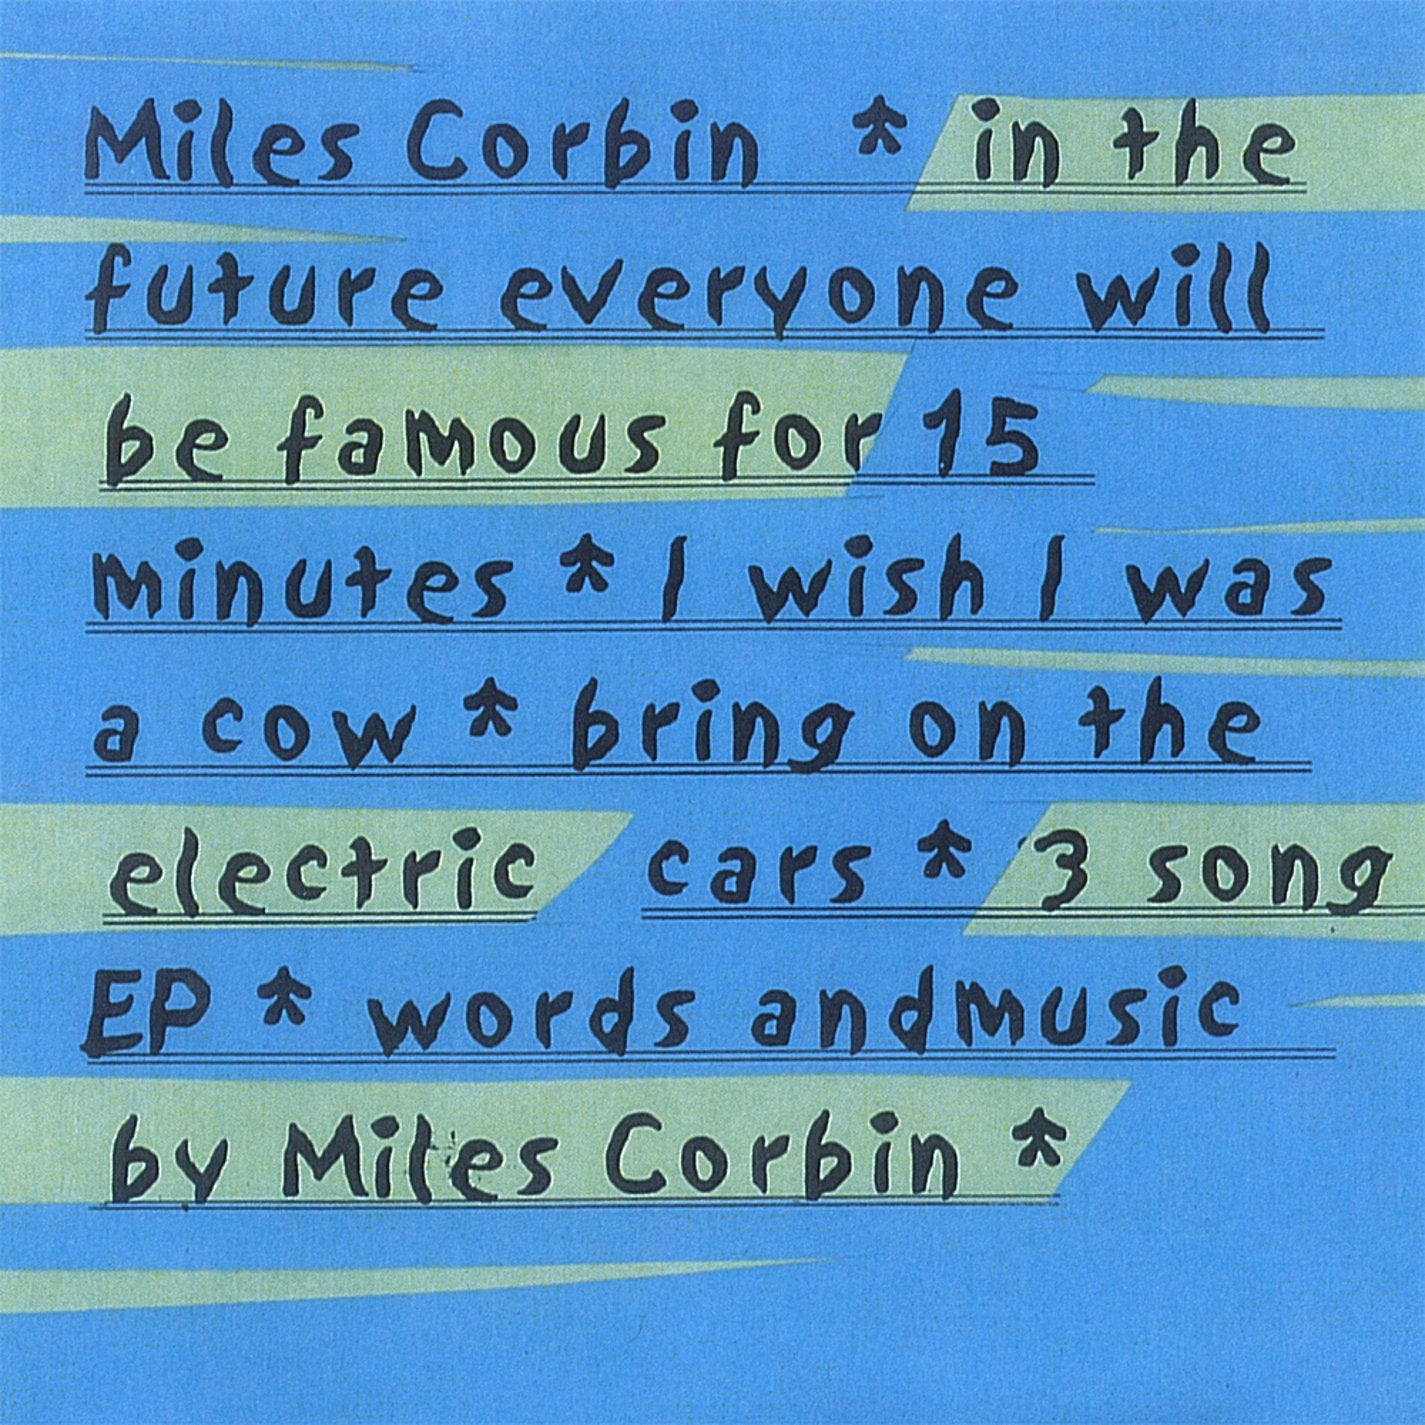 Miles Corbin * in the
future everyone will
be famous for 15
minutes * I wish I was
a cow * bring on the
electric cars * 3 song
EP * words andmusic
by Miles Corbin *